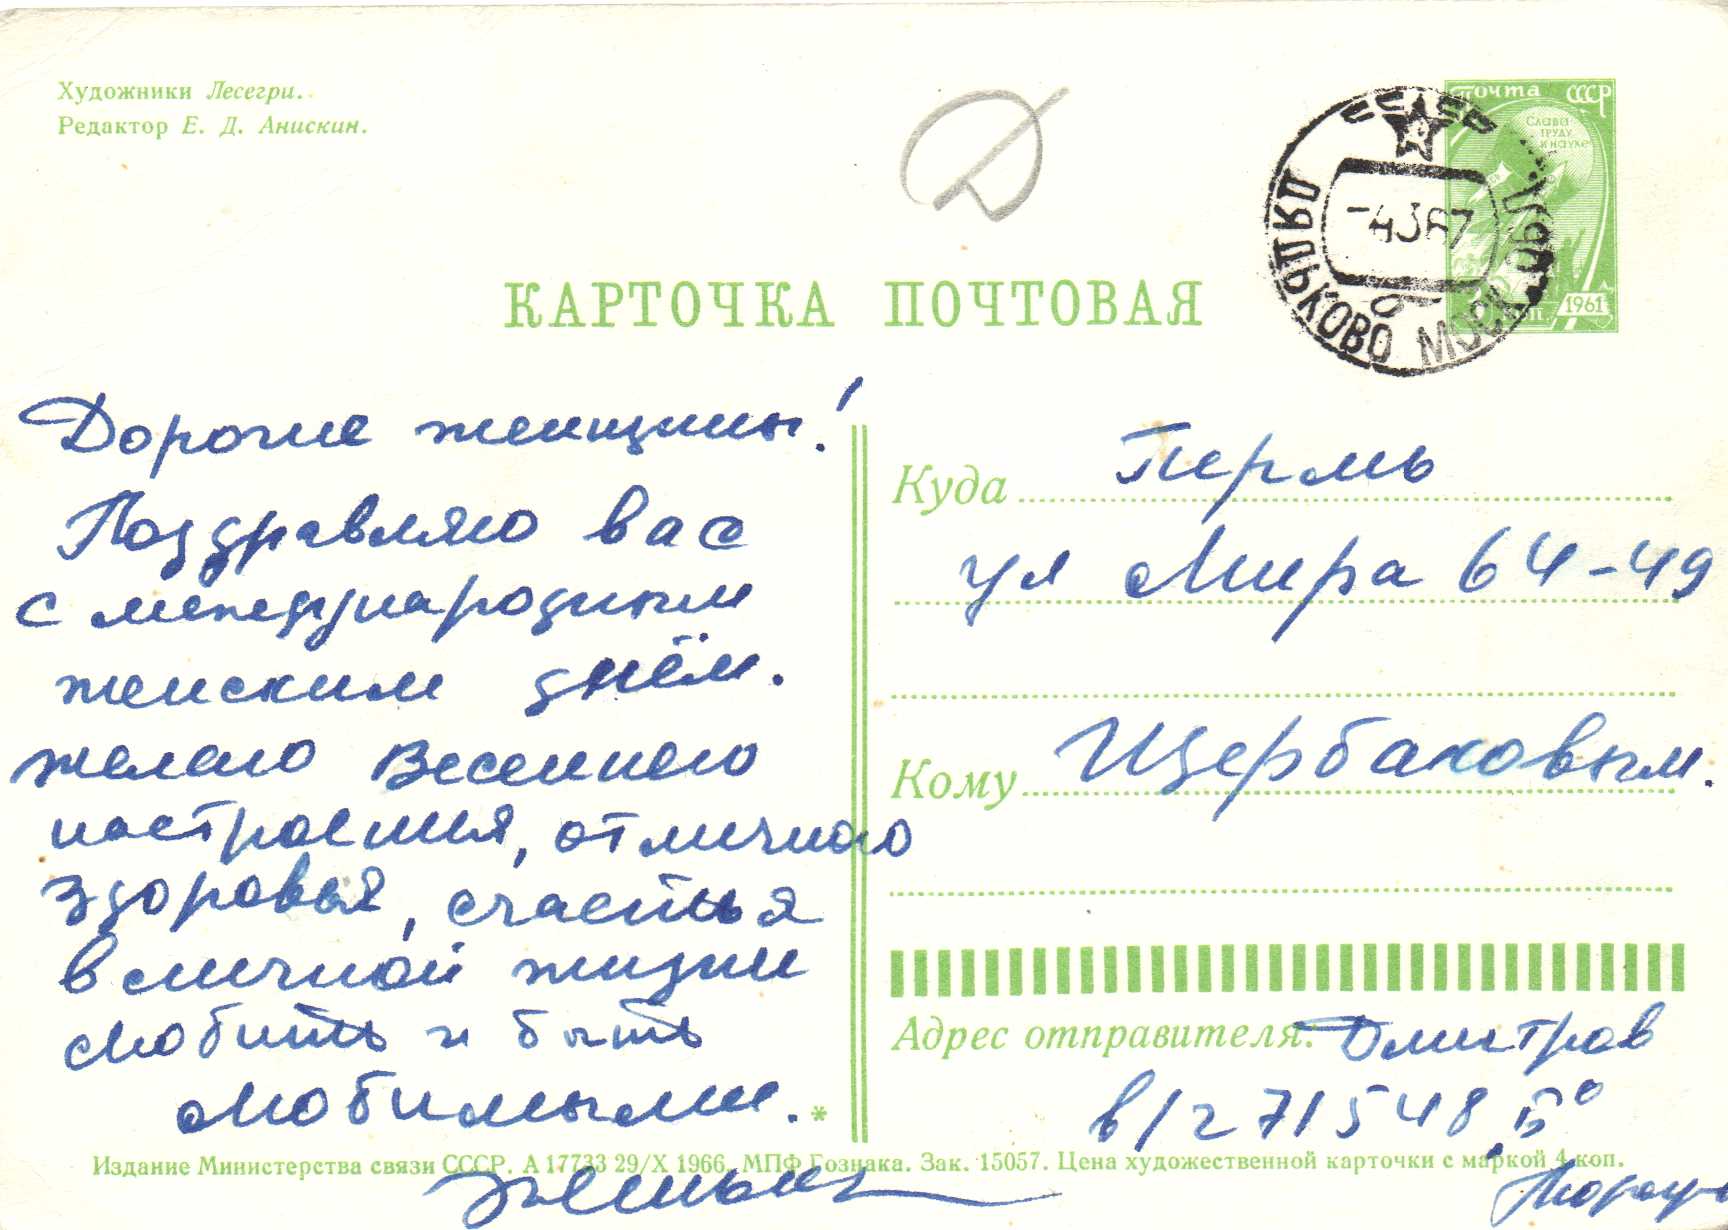 Художники Лесегри.
Редактор Е. Д. Анискин.
ПОЧТА СССР
СЛАВА
ТРУДУ
И НАУКЕ
1961
-4367
КАРТОЧКА ПОЧТОВАЯ
Дорогие женщины!
Поздравляю вас
с международным
женским днём.
желаю весеннего
настроения, отличного
здоровья, счастья
в личной жизни
любить и быть
любимыми.
*
Куда Пермь
ул Мира 64-49
Кому Щербаковым.
Адрес отправителя: Дмитров
в/ч 71548 "Б"
Издание Министерства связи СССР. А 17733 29/X 1966. МПФ Гознака. Зак. 15057. Цена художественной карточки с маркой 4 коп.